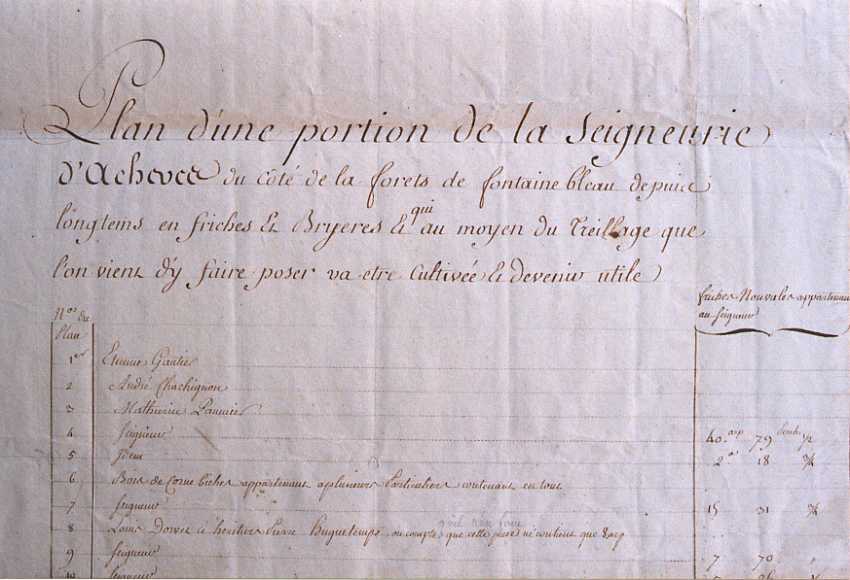 Plan d'une portion de la Seigneurie
d'Acheres du côté de la forets de fontaine bleau depuis
longtems en friches Et Bryeres & qui au moyen du Treillage que
l'on vient d'y faire poser va etre Cultivée & devenir utile
friches Nouvales appartenant
au Seigneur
N.os du
Plan
1er Etienne Gautier
2 André Chachignon
3 Mathurin Paumier
4 Seigneur 40. arp 79 1/2
5 Idem 2 18 3/4
6 Bois de Corne biches appartenant a plusieurs Particuliers contenant en tout
7 Seigneur 15 31 3/4
8 Louis & heritiers Pierre Huguetemps, on compte que cette piece ne contient que
9 Seigneur 7 70 "
10 Seigneur